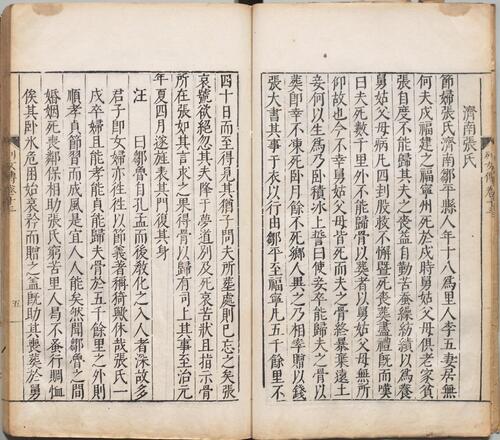 濟南張氏
節婦張氏濟南鄒平縣人年十八爲里人李五妻居無
何夫戍福建之福寧州死於戍時舅姑父母俱老家貧
張自度不能歸其夫之喪益自勤苦蠶繅紡績以爲養
舅姑父母病凡四刲股救不懈曁死喪葬盡禮旣而嘆
曰夫死數千里外不能歸骨以葬者以舅姑父母無所
仰故也今不幸舅姑父母皆死而夫之骨終暴棄遠土
妾何以生爲乃臥積氷上誓曰使妾卒能歸夫之骨以
葬卽幸不凍死卧月餘不死鄉人異之乃相率贈以錢
張大書其事于衣以行由鄒平至福寧凡五千餘里不
四十日而至得見其猶子問夫所葬處則已忘之矣張
哀號欲絕忽其夫降于夢道别及死哀苦狀且指示骨
所在張如其言求之果得骨以歸有司上其事至治元
年夏四月遂旌表其門復其身
汪 曰鄒魯自孔孟而後教化之入人者深故多
君子卽女婦亦徃徃以節義著稱猗歟休哉張氏一
戍卒婦且能孝能貞能歸夫骨於五千餘里之外則
順孝貞節習而成風是宜人人能矣然聞鄒魯之間
婚姻死喪鄰保相助張氏窮苦里人曷不蚤行賙恤
俟其卧氷危困始哀矜而贈之盖旣助其喪葬於舅
列女傳卷十二
五